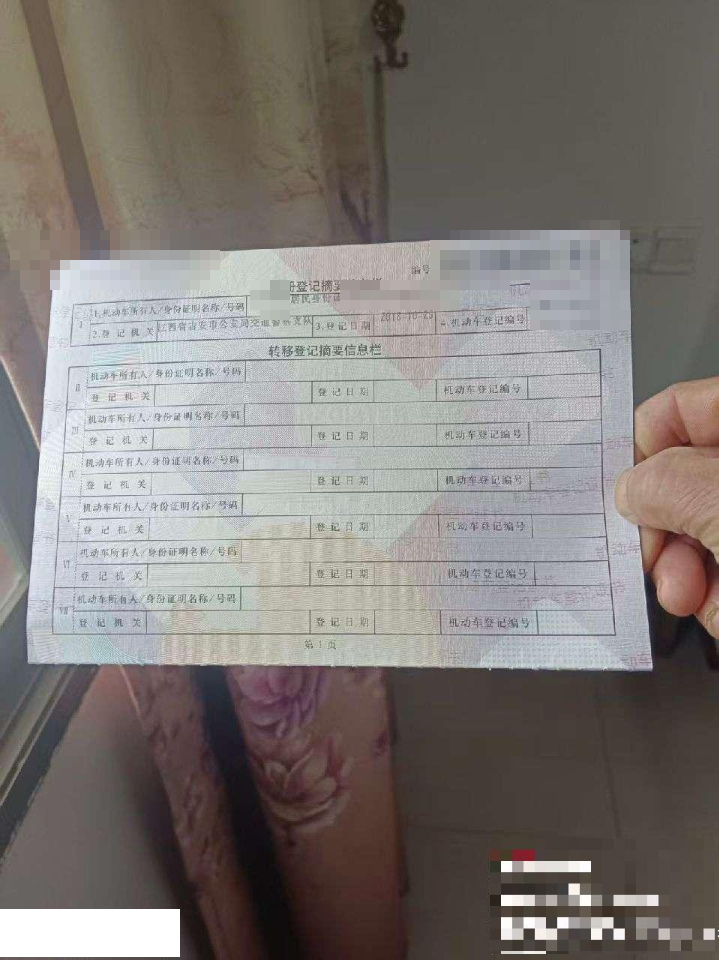 编号
登记摘要
1.机动车所有人/身份证明名称/号码 居民身份证
I 2.登记机关 江西省吉安市公安局交通警察支队 3.登记日期 2018-10-25 4.机动车登记编号
转移登记摘要信息栏
II 机动车所有人/身份证明名称/号码
登记机关 登记日期 机动车登记编号
III 机动车所有人/身份证明名称/号码
登记机关 登记日期 机动车登记编号
IV 机动车所有人/身份证明名称/号码
登记机关 登记日期 机动车登记编号
V 机动车所有人/身份证明名称/号码
登记机关 登记日期 机动车登记编号
VI 机动车所有人/身份证明名称/号码
登记机关 登记日期 机动车登记编号
VII 机动车所有人/身份证明名称/号码
登记机关 登记日期 机动车登记编号
第1页